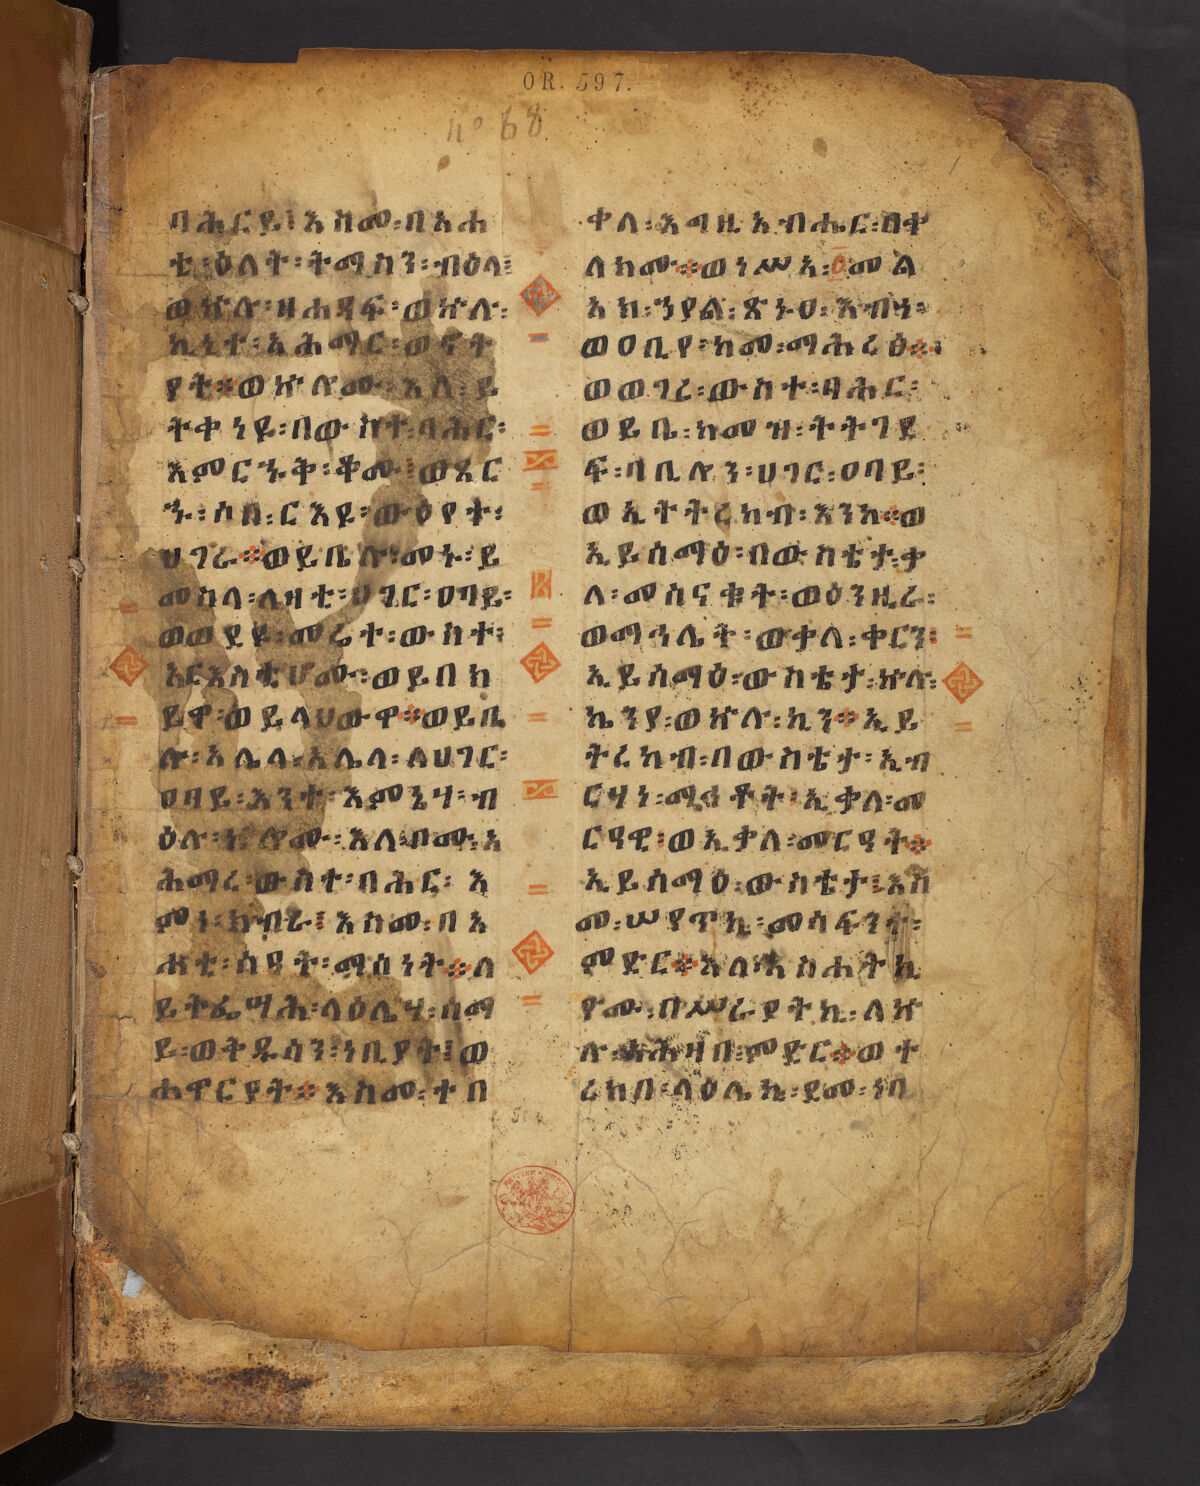 OR. 597.
nº 68
ባሕርይ፤ እስመ፡ በአሐ
ቲ፡ ዕለት፡ ትማስን፡ ብዕላ፡
ወኵሉ፡ ዘሐዳፍ፡ ወኵሉ፡
ኪኒተ፡ አሕማር፡ ወኖት
ያት፨ ወኵሎሙ፡ እለ፡ ይ
ትቀነዩ፡ በውስተ፡ ባሕር፡
እምርኁቅ፡ ቆሙ፤ ወጸር
ኁ፡ ሶበ፡ ርእዩ፡ ውዕየተ፡
ሀገራ፨ ወይቤሉ፡ መኑ፡ ይ
መስላ፡ ለዛቲ፡ ሀገር፡ ዐባይ፡
ወወደዩ፡ መሬተ፡ ውስተ፡
አርእስቲሆሙ፡ ወይበክ
ይዋ፡ ወይላህውዋ፨ ወይቤ
ሉ፡ አሌላ፡ አሌላ፡ ለሀገር፡
ዐባይ፡ እንተ፡ እምኔሃ፡ ብ
ዕሉ፡ ኵሎሙ፡ እለ፡ ቦሙ፡ አ
ሕማረ፡ ውስተ፡ በሕር፡ እ
ምነ፡ ክብራ፤ እስመ፡ በአ
ሐቲ፡ ሰዓት፡ ማሰነት፨ ለ
ይትፌሣሕ፡ ላዕሌሃ፡ ሰማ
ይ፡ ወቅዱሳን፡ ነቢያት፤ ወ
ሐዋርያት፨ እስመ፡ ተበ
ቀለ፡ እግዚአብሔር፡ በቀ
ለክሙ፨ ወነሥአ፡ ፩መል
አክ፡ ኀያል፡ ጽኑዐ፡ እብነ፡
ወዐቢየ፡ ከመ፡ ማሕረፅ፨
ወወገረ፡ ውስተ፡ ባሕር፡
ወይቤ፡ ከመዝ፡ ትትገደ
ፍ፡ ባቢሎን፡ ሀገር፡ ዐባይ፡
ወኢትትረከብ፡ እንከ፨ ወ
ኢይሰማዕ፡ በውስቴታ፡ ቃ
ለ፡ መሰናቁት፡ ወዕንዚራ፡
ወማኅሌት፡ ወቃለ፡ ቀርን፡
ኢይሰማዕ፡ ውስቴታ፡ ኵሉ፡
ኬንያ፡ ወኵሉ፡ ኪን፨ ኢይ
ትረከብ፡ በውስቴታ፡ ኢብ
ርሃነ፡ ማኅቶት፤ ኢቃለ፡ መ
ርዓዊ፤ ወኢቃለ፡ መርዓት፨
ኢይሰማዕ፡ ውስቴታ፤ እስ
መ፡ ሠያጥኪ፡ መሳፍንተ፡
ምድር፨ እለ፡ አስሐትኪ
ዮሙ፡ በሥራያትኪ፡ ለኵ
ሉ፡ አሕዛበ፡ ምድር፨ ወተ
ረክበ፡ ላዕሌኪ፡ ደመ፡ ነበ